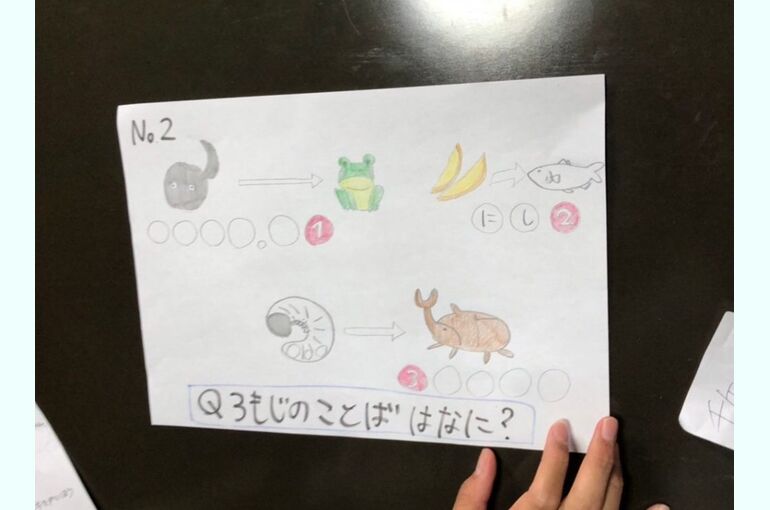 No.2
1
にし2
3
Q3もじのことばはなに?